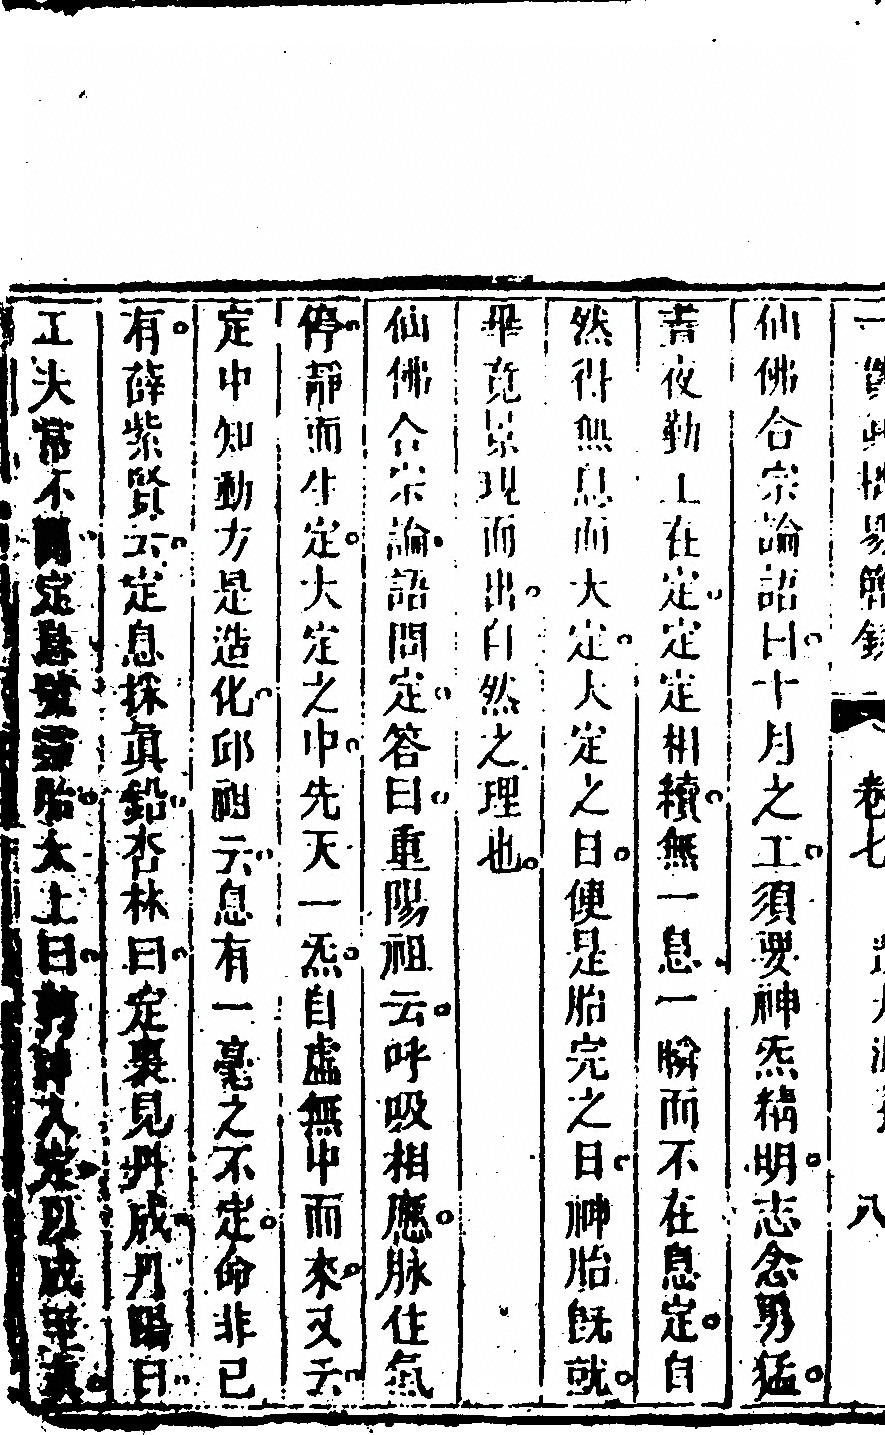 卷七
八
仙佛合宗論語曰十月之工須要神炁精明志念勇猛
晝夜勤工在定定定相續無一息一瞬而不在息定自
然得無息而大定大定之日便是胎完之日神胎旣就
畢竟景現而出自然之理也
仙佛合宗論語問定答曰重陽祖云呼吸相應脉住氣
停靜而生定大定之中先天一炁自虛無中而來又云
定中知動方是造化邱祖云息有一毫之不定命非已
有薛紫賢云定息採眞鉛杏林曰定裏見丹成丹陽曰
工夫常不間定息號靈胎太上曰 神入定以成